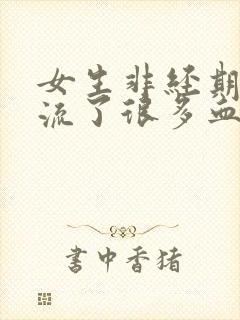 女生非经期
流了很多血
書中香猪